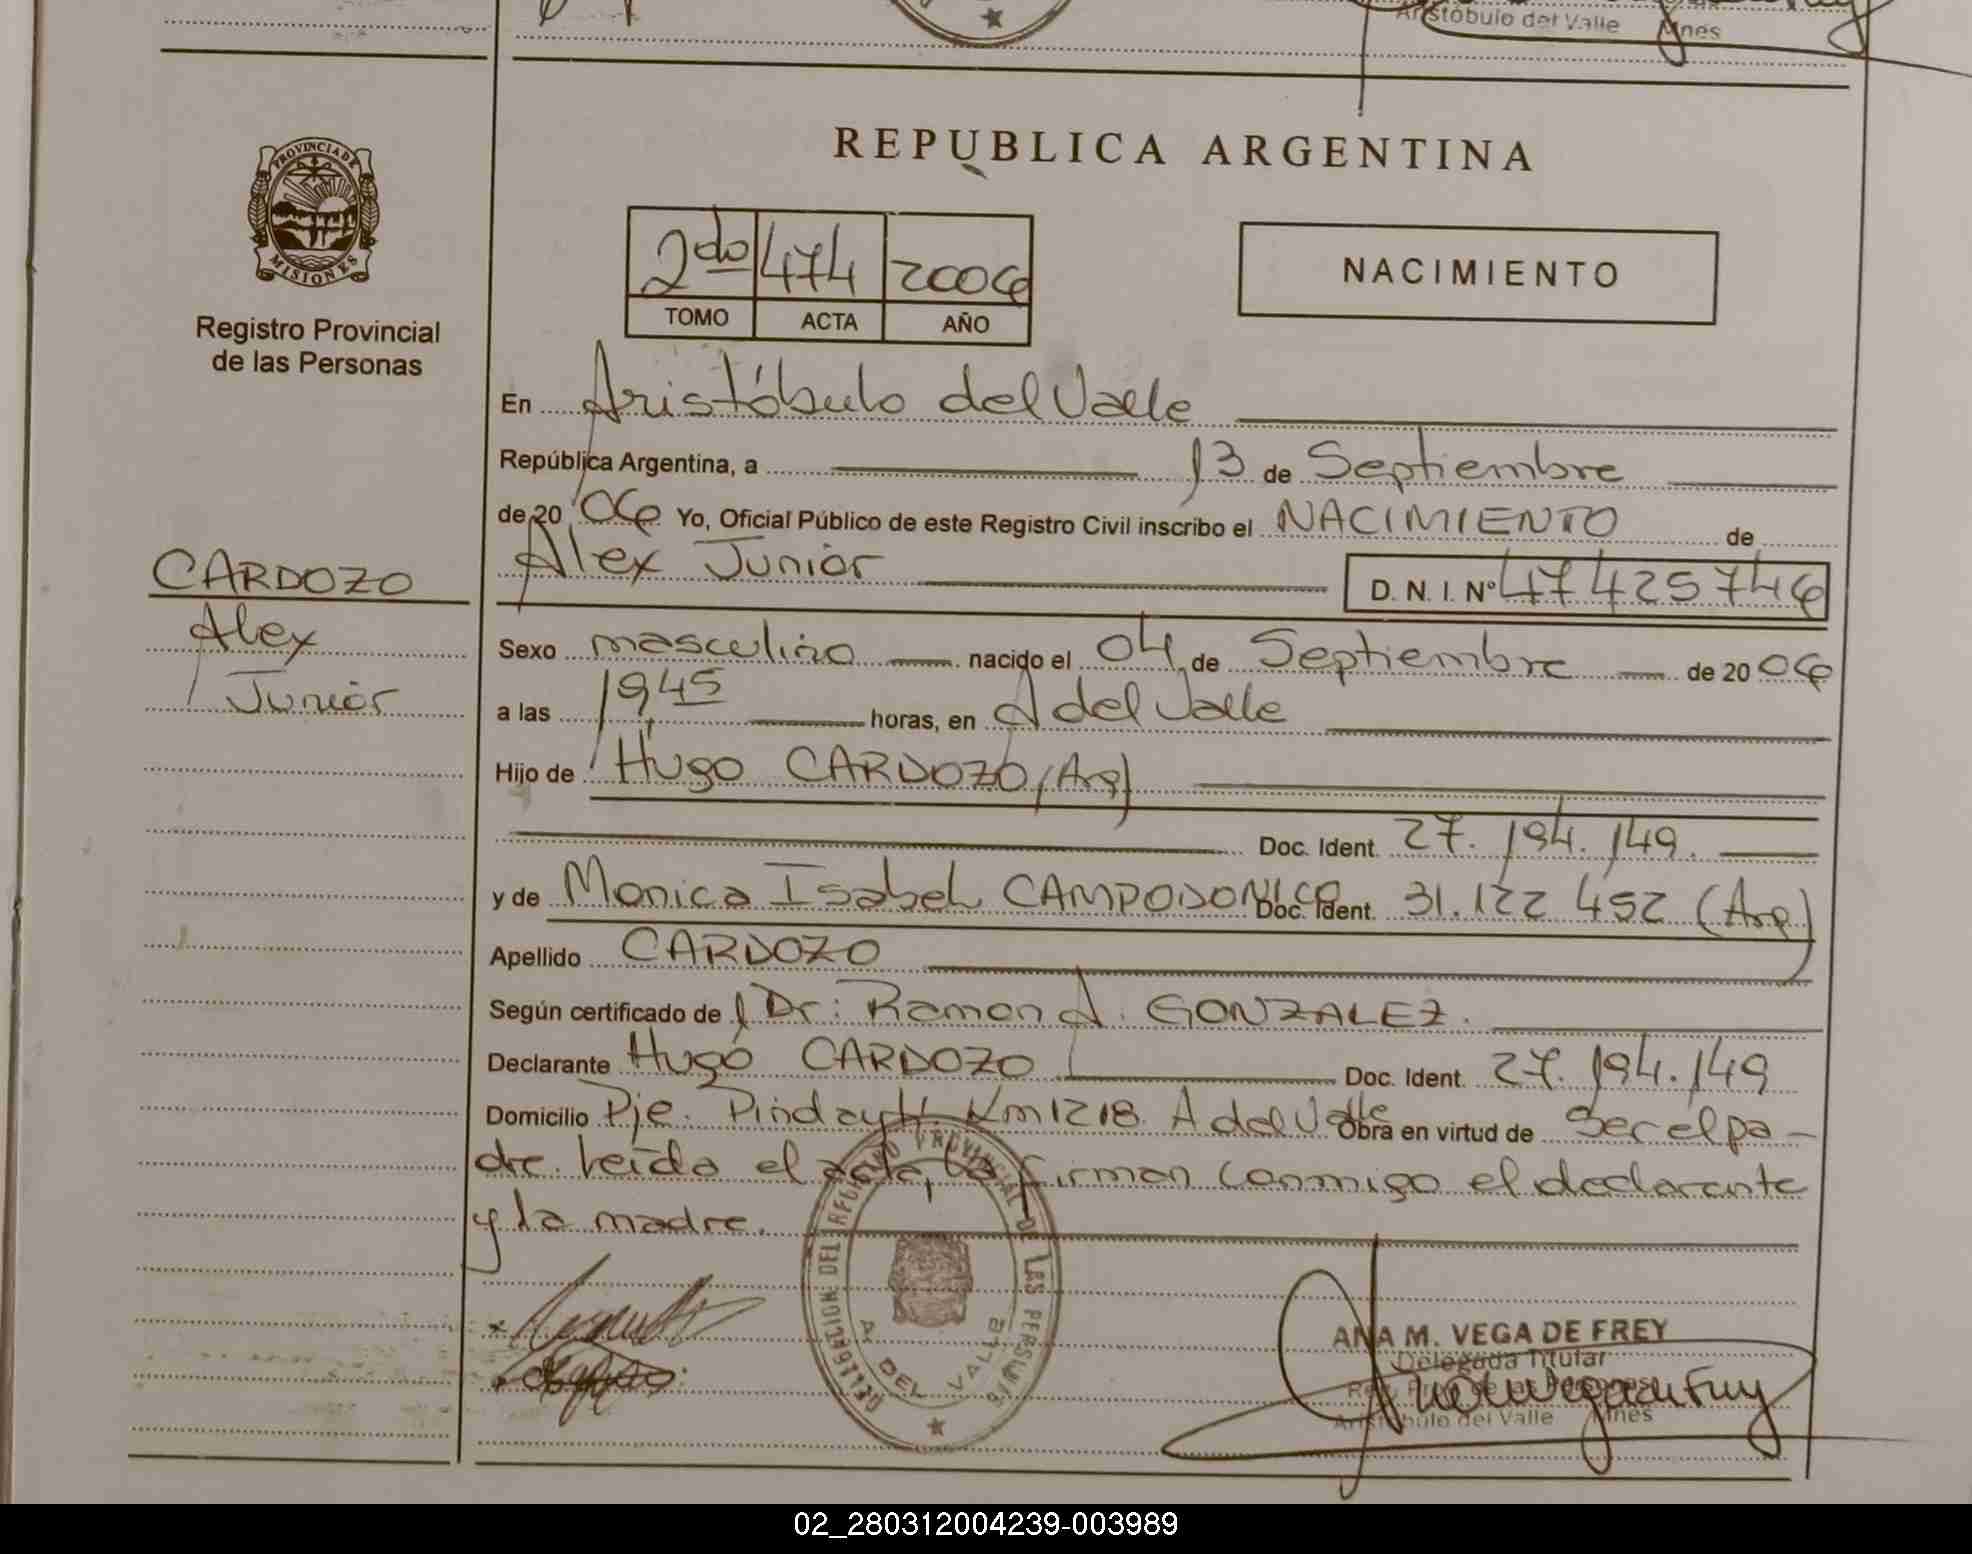 Aristóbulo del Valle Mnes
REPUBLICA ARGENTINA
PROVINCIA DE
MISIONES
Registro Provincial
de las Personas
2do 474 2006
TOMO ACTA AÑO
NACIMIENTO
En Aristóbulo del Valle
República Argentina, a 13 de Septiembre
de 2006 Yo, Oficial Público de este Registro Civil inscribo el NACIMIENTO de
Alex Junior D. N. I. Nº 47425746
CARDOZO
Alex
Junior
Sexo masculino nacido el 04 de Septiembre de 2006
a las 19,45 horas, en A del Valle
Hijo de Hugo CARDOZO (Arg)
Doc. Ident. 27.194.149.
y de Monica Isabel CAMPODONICO Doc. Ident. 31.122 452 (Arg)
Apellido CARDOZO
Según certificado de Dr: Ramon A. GONZALEZ.
Declarante Hugo CARDOZO Doc. Ident. 27.194.149
Domicilio Pje. Pindayti Km 1218 A del Valle Obra en virtud de Ser el pa-
dre. Leída el acta, la firman conmigo el declarante
y la madre.
DELEGACION DEL REGISTRO PROVINCIAL DE LAS PERSONAS
A. DEL VALLE
ANA M. VEGA DE FREY
Delegada Titular
Reg. Prov. de las Personas
Aristóbulo del Valle Mnes
02_280312004239-003989